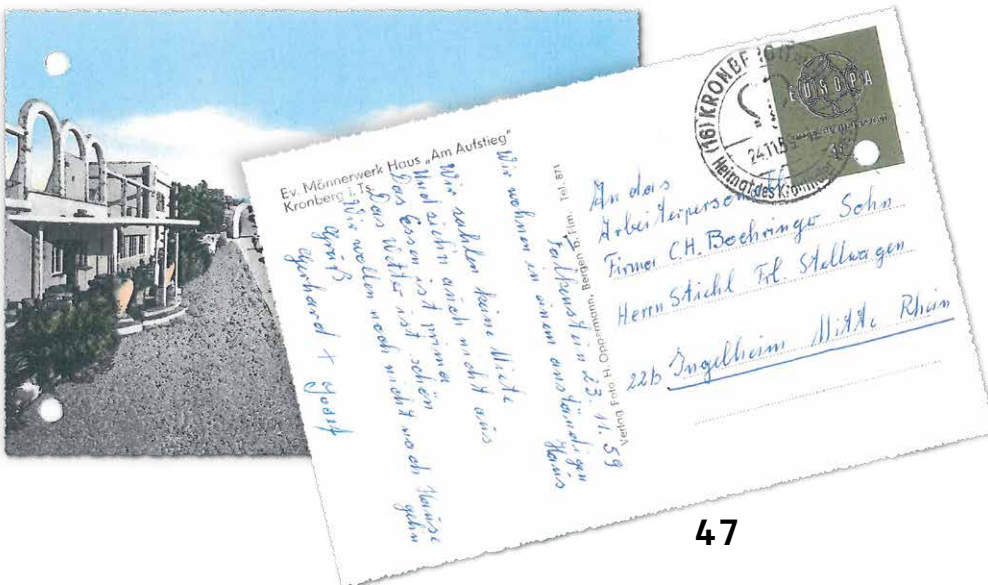 Ev. Männerwerk Haus „Am Aufstieg"
Kronberg i. Ts.
Falkenstein 23. 11. 59
Wir wohnen in einem anständigen
Haus
Wir zahlen keine Miete
Und ziehn auch nicht aus
Das Essen ist prima
Das Wetter ist schön
Wir wollen noch nicht nach Hause
gehn
Gruß
Gerhard + Josef
Verlag Foto H. Oppermann, Bergen b. Ffm. Tel. 871
(16) KRONBERG (TAUNUS)
24.11.59
Heimat des Kronthaler
EUROPA
An das
Arbeiterpersonal
Firma C.H. Boehringer Sohn
Herrn Stiehl Frl. Stellwagen
22b Ingelheim Mitte Rhein
47